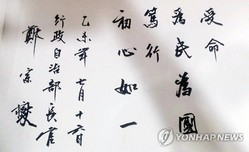 受命
爲民爲國
篤行
初心如一
乙未年 七月十六日
行政自治部長官
鄭宗燮
YONHAP NEWS